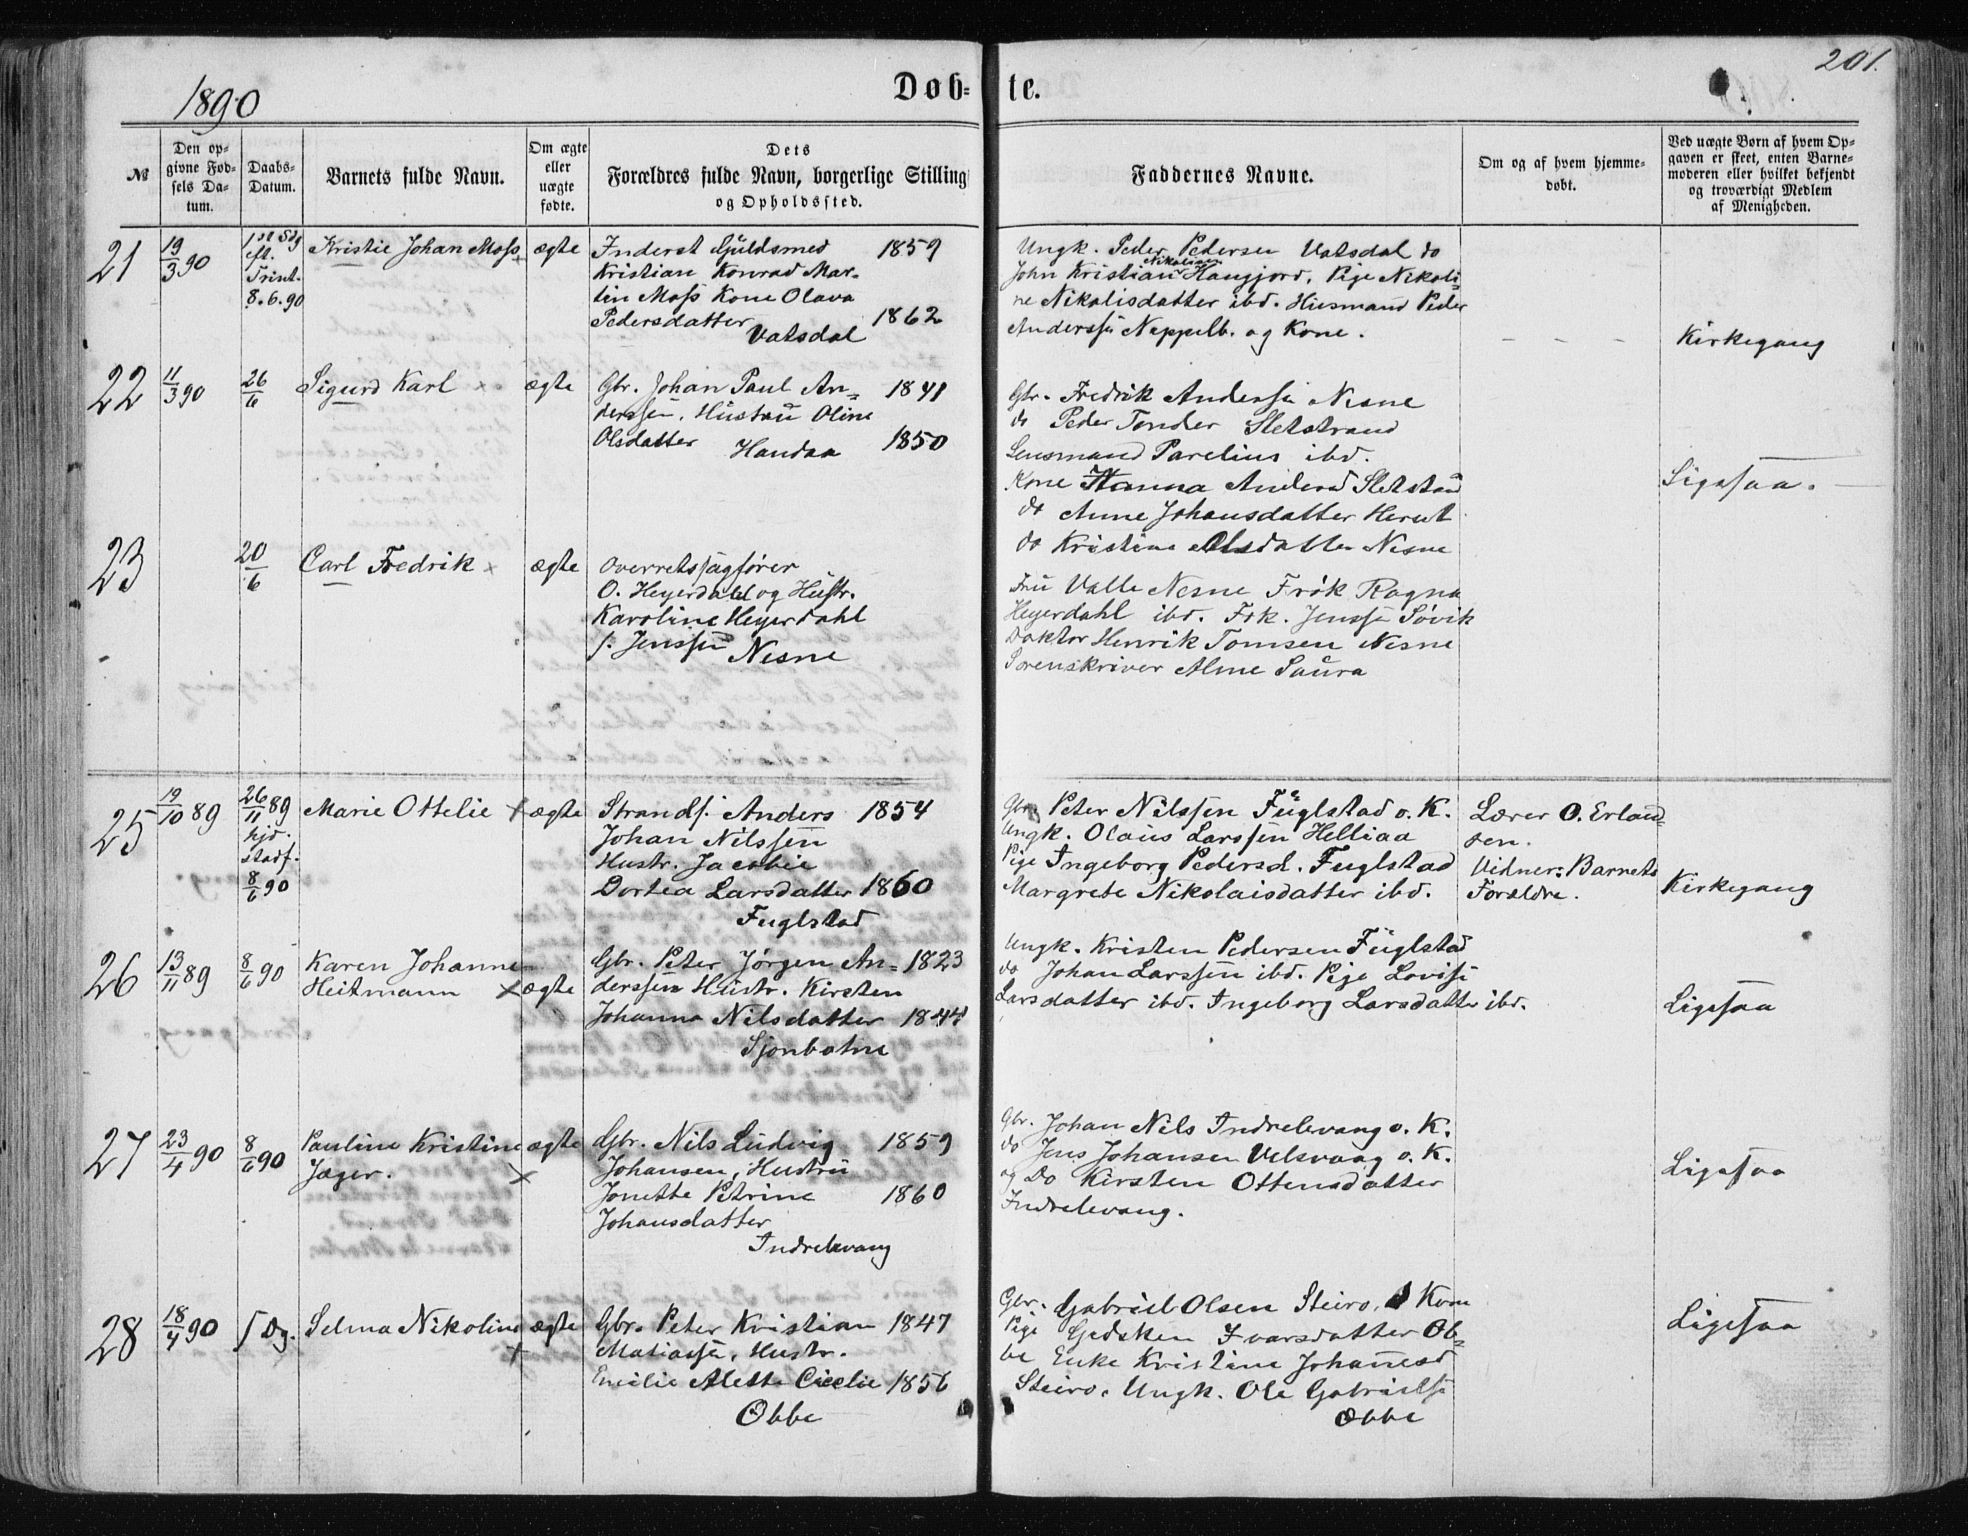 201.
1890
Døb-te.
№
Den op-
givne Fød-
sels Da-
tum.
Daabs-
Datum.
Barnets fulde Navn.
Om ægte
eller
uægte
fødte.
Dets
Forældres fulde Navn, borgerlige Stilling
og Opholdssted.
Faddernes Navne.
Om og af hvem hjemme-
døbt.
Ved uægte Børn af hvem Op-
gaven er skeet, enten Barne-
moderen eller hvilket bekjendt
og troværdigt Medlem
af Menigheden.
21
19/3 90
1st Sdg
eft.
Trint.
8.6.90
Kristie Johan Moss
ægte
Inderst Guldsmed 1859
Kristian Konrad Mar-
tin Moss Kone Olava
Pedersdatter 1862
Vatsdal
Ungk. Peder Pedersen Vatsdal do
John Kristian Nikolaisen Haugjord, Pige Nikoli-
ne Nikolisdatter ibd. Husmand Peder
Anderssen Neppelb. og Kone.
- - -
Kirkegang
22
11/3 90
26/6
Sigurd Karl
ægte
Gbr. Johan Paul An- 1841
derssen, Hustru Oline
Olsdatter 1850
Handaa
Gbr. Fredrik Anderssen Nesne
do Peder Tonder Sletstrand
Lensmand Parelius ibd.
Kone Hanna Andersd Sletstrand
do Anne Johansdatter
do Kristine Olsdatter Nesne
Ligesaa.
23
20/6
Carl Fredrik
ægte
Overretssagfører
O. Heyerdahl og Hustr.
Karoline Heyerdahl
f. Jenssen Nesne
Fru Valle Nesne Frøk Ragna
Heyerdahl ibd. Frk. Jenssen Søvik
Doktor Henrik Tomsen Nesne
Sorenskriver Alme Saura
25
19/10 89
26/11 89
hjd.
stadf.
8/6 90
Marie Ottelie
ægte
Strands. Anders 1854
Johan Nilssen
Hustr. Jacobie
Dortea Larsdatter 1860
Fuglstad
Gbr Peter Nilssen Fuglstad o. K.
Ungk. Olaus Larssen Helliaa
Pige Ingeborg Pedersd. Fuglstad
Margrete Nikolaisdatter ibd.
Lærer O. Erland-
sen.
Vidner: Barnets
Forældre.
Kirkegang
26
13/11 89
8/6 90
Karen Johanne
Heitmann
ægte
Gbr. Peter Jørgen An- 1823
derssen Hustr. Kirsten
Johanna Nilsdatter 1844
Sjonbotne
Ungk. Kristen Pedersen Fuglstad
do Johan Larssen ibd. Pige Lovise
Larsdatter ibd. Ingeborg Larsdatter ibd.
Ligesaa
27
23/4 90
8/6 90
Pauline Kristine
Jæger.
ægte
Gbr. Nils Ludvig 1859
Johansen, Hustru
Jonette Petrine 1860
Johansdatter
Indrelevang
Gbr. Johan Nils Indrelevang o. K.
do Jens Johansen Velsvaag o. K.
og Do Kirsten Ottensdatter
Indrelevang.
Ligesaa
28
18/4 90
s Dg.
Selma Nikoline
ægte
Gbr. Peter Kristian 1847
Matiassen, Hustr.
Emilie Alette Cicelie 1856
Obbe
Gbr. Gabriel Olsen Steiro, Kone
Pige Gidsken Ivarsdatter Ob-
be Enke Kristine Johannesd
Steiro, Ungk. Ole Gabrielsen
Obbe
Ligesaa